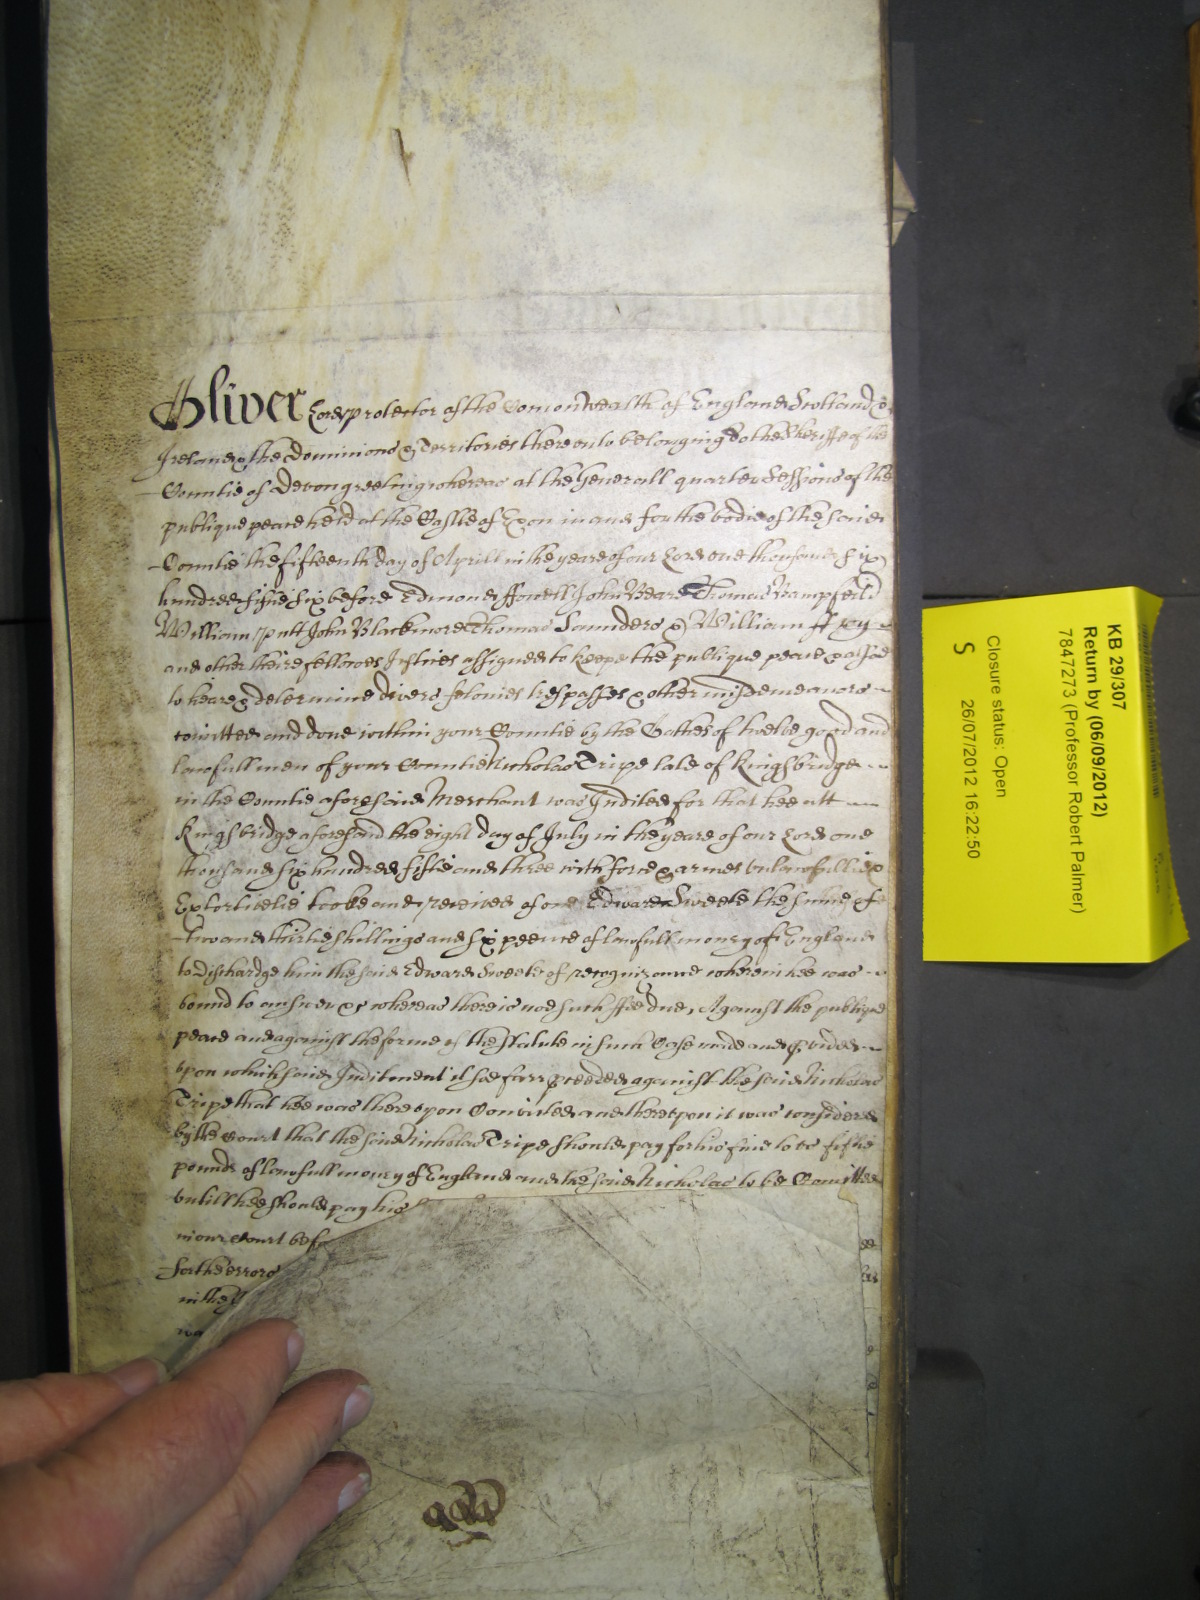 Oliver Lord protector of the Comonwealth of England Scotland &
Ireland & the Dominions & Territories thereunto belonging To the Sheriffe of the
Countie of Devon greeting whereas at the Generall quarter Sessions of the
publique peace held at the Castle of Exon in and for the bodie of the said
Countie the fifteenth day of Aprill in the yeare of our Lord one thousand six
hundred fiftie six before Edmond ffowell John Beare Thomas Bampfeild
William Putt John Blackmore Thomas Saunders & William
and other theire fellowes Justices assigned to keepe the publique peace & alsoe
to heare & determine divers felonies trespasses & other misdemeanors
comitted and done within your Countie by the Oathes of twelve good and
lawfull men of your Countie Nicholas Tripe late of Kingsbridge
in the Countie aforesaid Merchant was Indited for that hee att
Kingsbridge aforesaid the eight day of July in the yeare of our Lord one
thousand six hundred fiftie and three with force & armes unlawfullie &
Extortivelie tooke and received of one Edward Sweete the summe of
two and thirtie shillings and six peence of lawfull money of England
to dischardge him the said Edward Sweete of recognizance wherein hee was
bound to answer &c whereas there is noe such ffee due, Against the publique
peace and against the forme of the Statute in such Case made and pvided
upon which said Inditment it soe farr pceeded against the said Nicholas
Tripe that hee was thereupon Convicted and thereupon it was considered
by the Court that the said Nicholas Tripe should pay for his fine to us fiftie
pounds of lawfull money of England and the said Nicholas to be Comitted
untill hee should pay his
in our Court bef
for the errors
in the
wa
KB 29/307
Return by (06/09/2012)
7847273 (Professor Robert Palmer)
Closure status: Open
26/07/2012 16:22:50
S